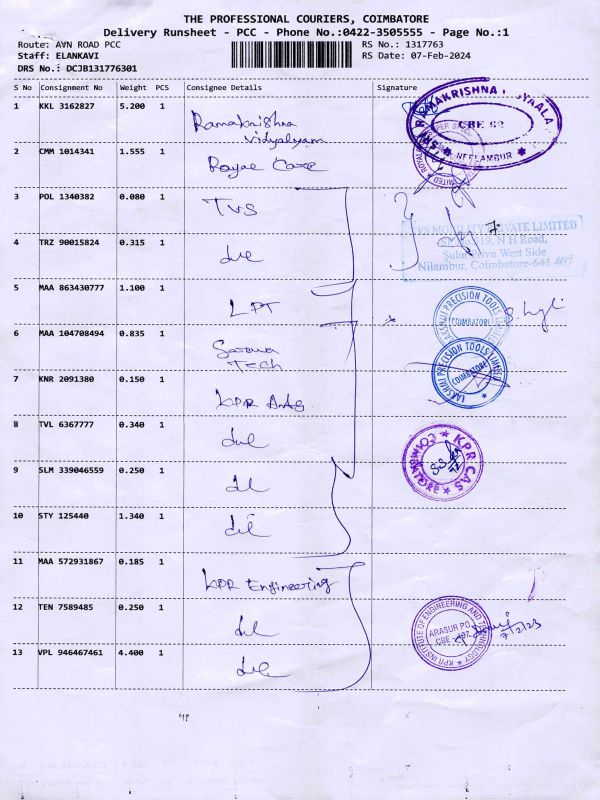 THE PROFESSIONAL COURIERS, COIMBATORE
Delivery Runsheet - PCC - Phone No.:0422-3505555 - Page No.:1
Route: AVN ROAD PCC
RS No.: 1317763
Staff: ELANKAVI
RS Date: 07-Feb-2024
DRS No.: DCJB131776301
S No Consignment No Weight PCS Consignee Details Signature
1 KKL 3162827 5.200 1 Ramakrishna
Vidyalyam
2 CMM 1014341 1.555 1 Royal Care
3 POL 1340382 0.080 1 TVS
4 TRZ 90015824 0.315 1
5 MAA 863430777 1.100 1 LPT
6 MAA 104708494 0.835 1
Tech
7 KNR 2091380 0.150 1 KPR
8 TVL 6367777 0.340 1
9 SLM 339046559 0.250 1
10 STY 125440 1.340 1
11 MAA 572931867 0.185 1 KPR Engineering
12 TEN 7589485 0.250 1
13 VPL 946467461 4.400 1
CBE 62
NEELAMBUR
TVS MOBILITY PRIVATE LIMITED
N H Road,
West Side
Nilambur, Coimbatore-641 407
LAKSHMI PRECISION TOOLS LIMITED
COIMBATORE
LAKSHMI PRECISION TOOLS LIMITED
COIMBATORE
KPR CAS
KPR INSTITUTE OF ENGINEERING AND TECHNOLOGY
ARASUR PO
CBE - 407
7/2/23